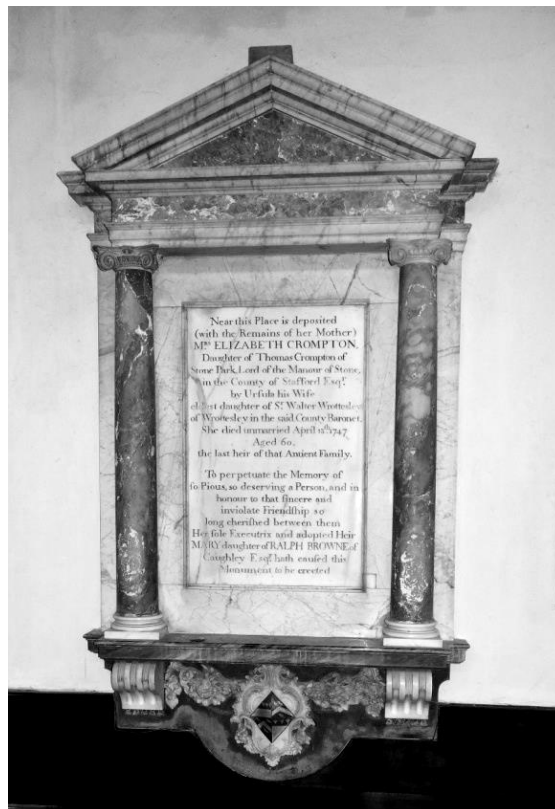 Near this Place is deposited
(with the Remains of her Mother)
Mrs ELIZABETH CROMPTON,
Daughter of Thomas Crompton of
Stone Park, Lord of the Manour of Stone,
in the County of Stafford Esqr.
by Urſula his Wife
eldest daughter of Sr. Walter Wrottesley
of Wrottesley in the said County Baronet.
She died unmarried April 12th 1747
Aged 60.
the last heir of that Antient Family.
To perpetuate the Memory of
ſo Pious, so deserving a Person, and in
honour to that ſincere and
inviolate Friendſhip so
long cheriſhed between them
Her ſole Executrix and adopted Heir
MARY daughter of RALPH BROWNE of
Caughley Esqr. hath cauſed this
Monument to be erected